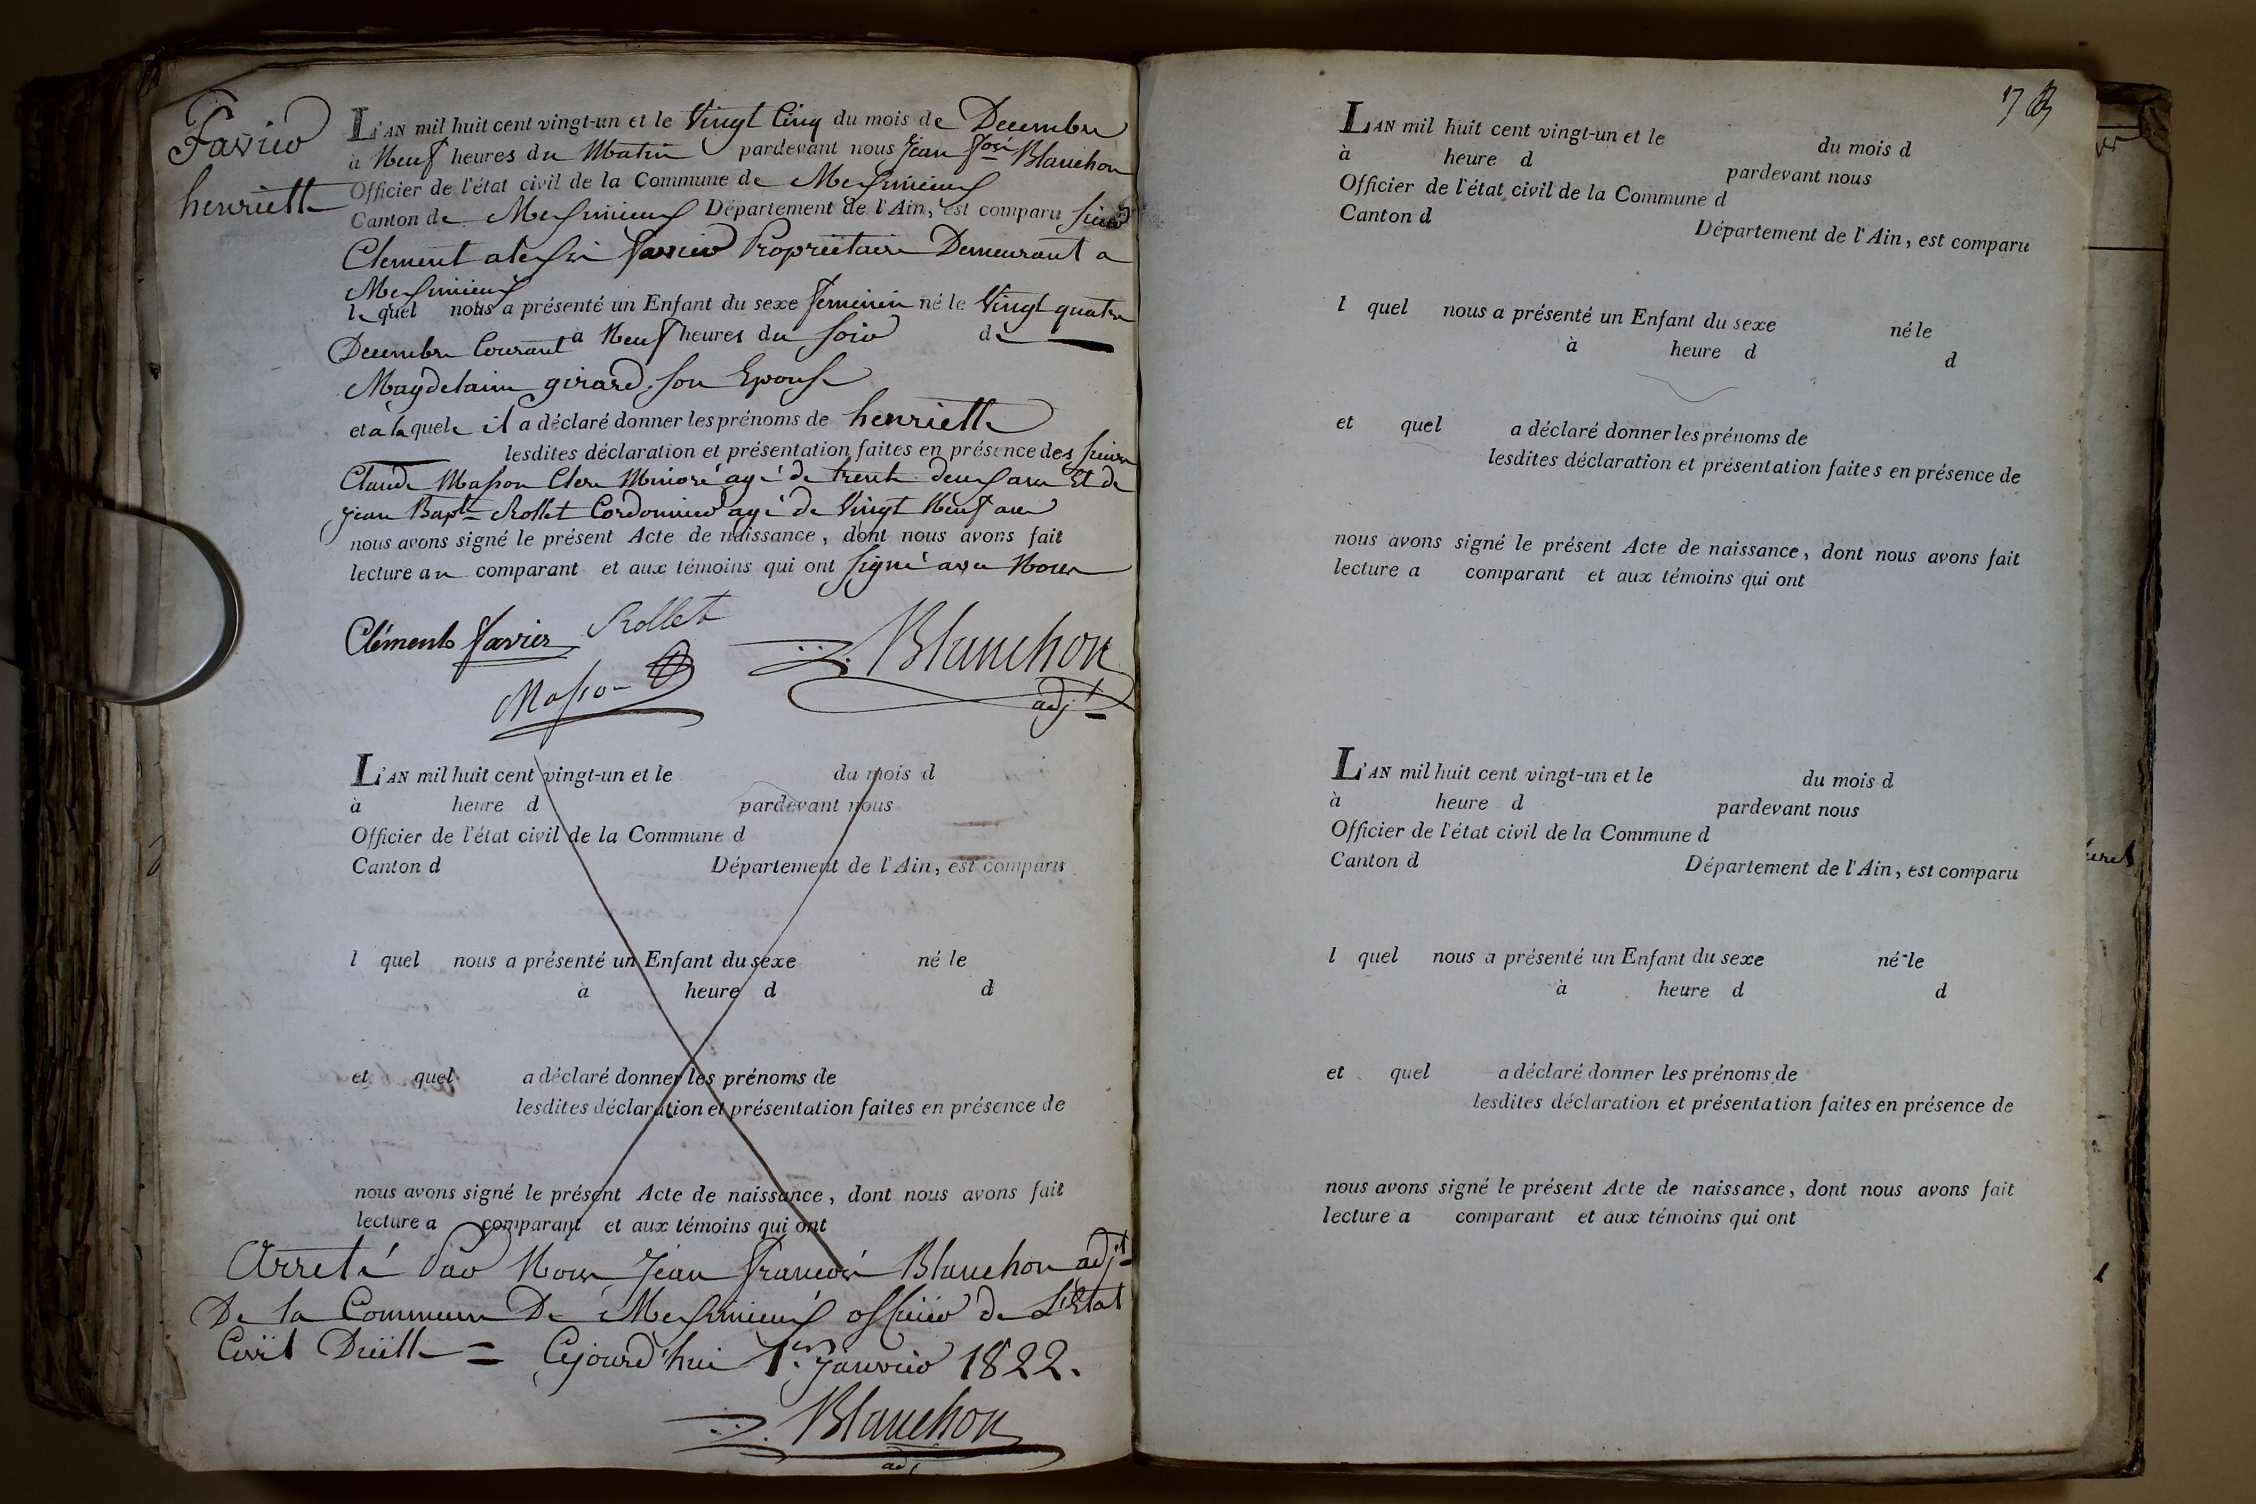 Favier
henriette
L'AN mil huit cent vingt-un et le Vingt Cinq du mois de Decembre
à Neuf heures du Matin pardevant nous Jean Blanchon
Officier de l'état civil de la Commune de Meximieux
Canton de Meximieux Département de l'Ain, est comparu sieur
Clement favier Proprietaire Demeurant a
Meximieux
le quel nous a présenté un Enfant du sexe feminin né le Vingt quatre
Decembre Courant à Neuf heures du soir de
Magdelaine girard son Epouse
et a la quele il a déclaré donner les prénoms de henriette
lesdites déclaration et présentation faites en présence des sieurs
Claude Masson Clerc Minoré agé de trente deux ans Et de
jean Bapte Rollet Cordonnier agé de Vingt Neuf ans
nous avons signé le présent Acte de naissance, dont nous avons fait
lecture au comparant et aux témoins qui ont signé avec Nous
Clément favier Rollet
Blanchon
Masson
adjt
L'AN mil huit cent vingt-un et le du mois d
à heure d pardevant nous
Officier de l'état civil de la Commune d
Canton d Département de l'Ain, est comparu
l quel nous a présenté un Enfant du sexe né le
à heure d d
et quel a déclaré donner les prénoms de
lesdites déclaration et présentation faites en présence de
nous avons signé le présent Acte de naissance, dont nous avons fait
lecture a comparant et aux témoins qui ont
Arreté Par Nous Jean francois Blanchon adjt
De la Commune De Meximieux officier de L'Etat
Civil Dudit = Cejourd'hui 1er janvier 1822.
Blanchon
adj
17
L'AN mil huit cent vingt-un et le du mois d
à heure d pardevant nous
Officier de l'état civil de la Commune d
Canton d Département de l'Ain, est comparu
l quel nous a présenté un Enfant du sexe né le
à heure d d
et quel a déclaré donner les prénoms de
lesdites déclaration et présentation faites en présence de
nous avons signé le présent Acte de naissance, dont nous avons fait
lecture a comparant et aux témoins qui ont
L'AN mil huit cent vingt-un et le du mois d
à heure d pardevant nous
Officier de l'état civil de la Commune d
Canton d Département de l'Ain, est comparu
l quel nous a présenté un Enfant du sexe né le
à heure d d
et quel a déclaré donner les prénoms de
lesdites déclaration et présentation faites en présence de
nous avons signé le présent Acte de naissance, dont nous avons fait
lecture a comparant et aux témoins qui ont